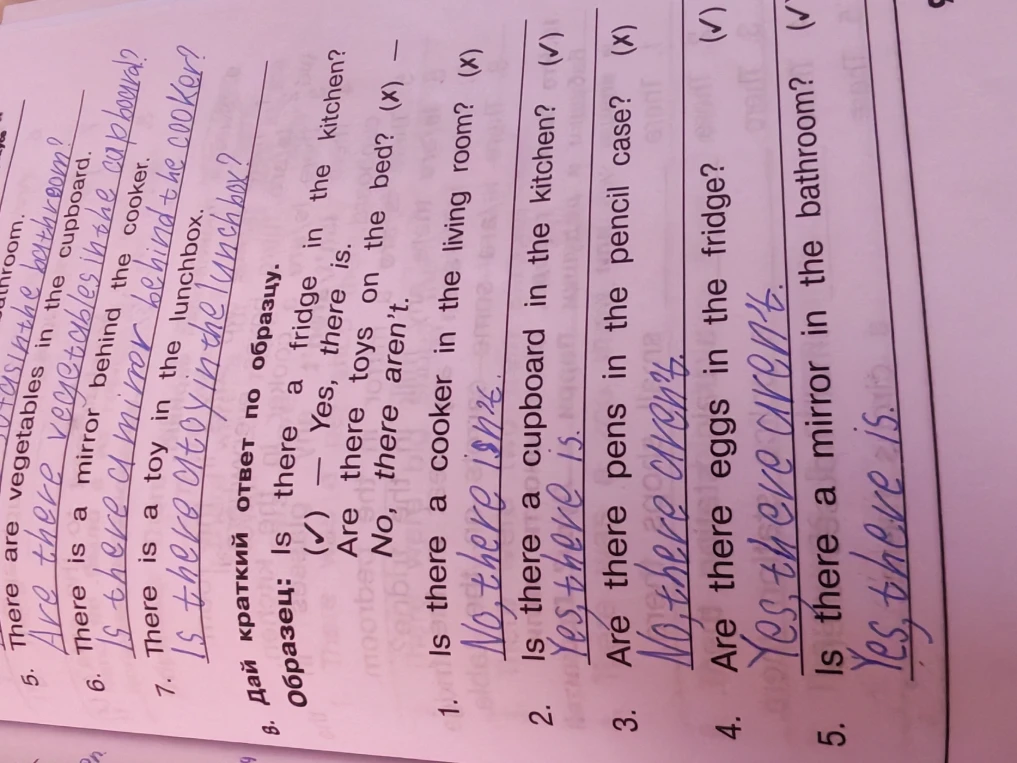 athroom.
in the bathroom?
5. There are vegetables in the cupboard.
Are there vegetables in the cupboard?
6. There is a mirror behind the cooker.
Is there a mirror behind the cooker?
7. There is a toy in the lunchbox.
Is there a toy in the lunchbox?
в. Дай краткий ответ по образцу.
Образец: Is there a fridge in the kitchen?
(✓) — Yes, there is.
Are there toys on the bed? (x) —
No, there aren't.
1. Is there a cooker in the living room? (x)
No, there isnt.
2. Is there a cupboard in the kitchen? (✓)
Yes, there is.
3. Are there pens in the pencil case? (x)
No, there arent.
4. Are there eggs in the fridge? (✓)
Yes, there arent.
5. Is there a mirror in the bathroom? (✓)
Yes, there is.